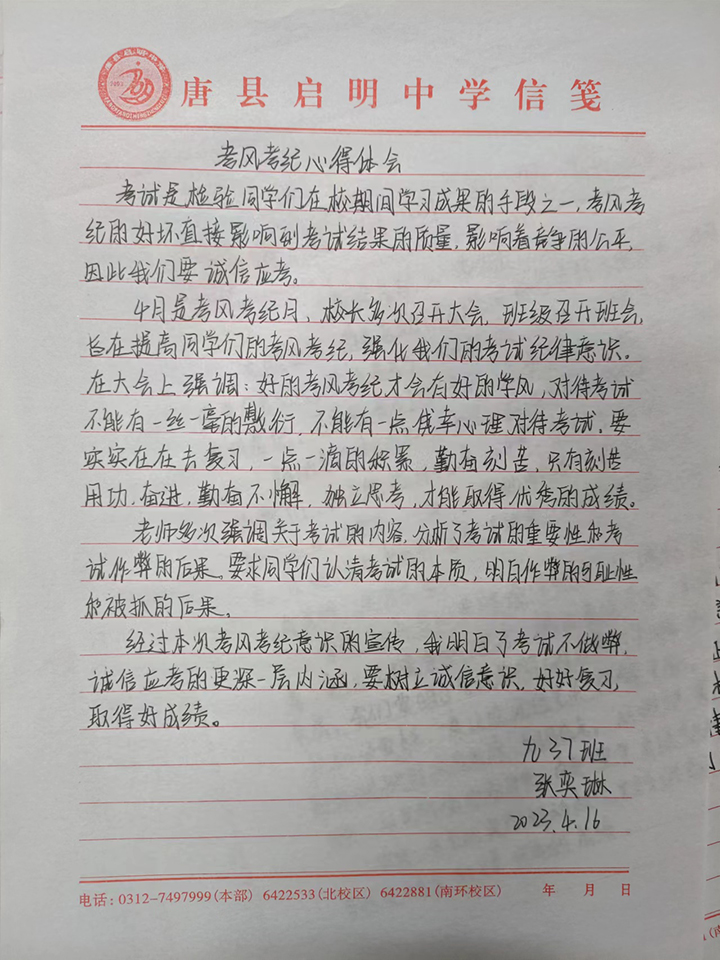 唐县启明中学信笺
考风考纪心得体会
考试是检验同学们在校期间学习成果的手段之一,考风考
纪的好坏直接影响到考试结果的质量,影响着竞争的公平,
因此我们要诚信应考。
4月是考风考纪月,校长多次召开大会,班级召开班会,
旨在提高同学们的考风考纪,强化我们的考试纪律意识。
在大会上强调:好的考风考纪才会有好的学风,对待考试
不能有一丝一毫的敷衍,不能有一点侥幸心理对待考试,要
实实在在去复习,一点一滴的积累,勤奋刻苦,只有刻苦
用功,奋进,勤奋不懈,独立思考,才能取得优秀的成绩。
老师多次强调关于考试的内容,分析了考试的重要性和考
试作弊的后果。要求同学们认清考试的本质,明白作弊的可耻性
和被抓的后果。
经过本次考风考纪意识的宣传,我明白了考试不做弊,
诚信应考的更深一层内涵,要树立诚信意识,好好复习,
取得好成绩。
九37班
张奕琳
2023.4.16
电话:0312-7497999(本部) 6422533(北校区) 6422881(南环校区) 年 月 日